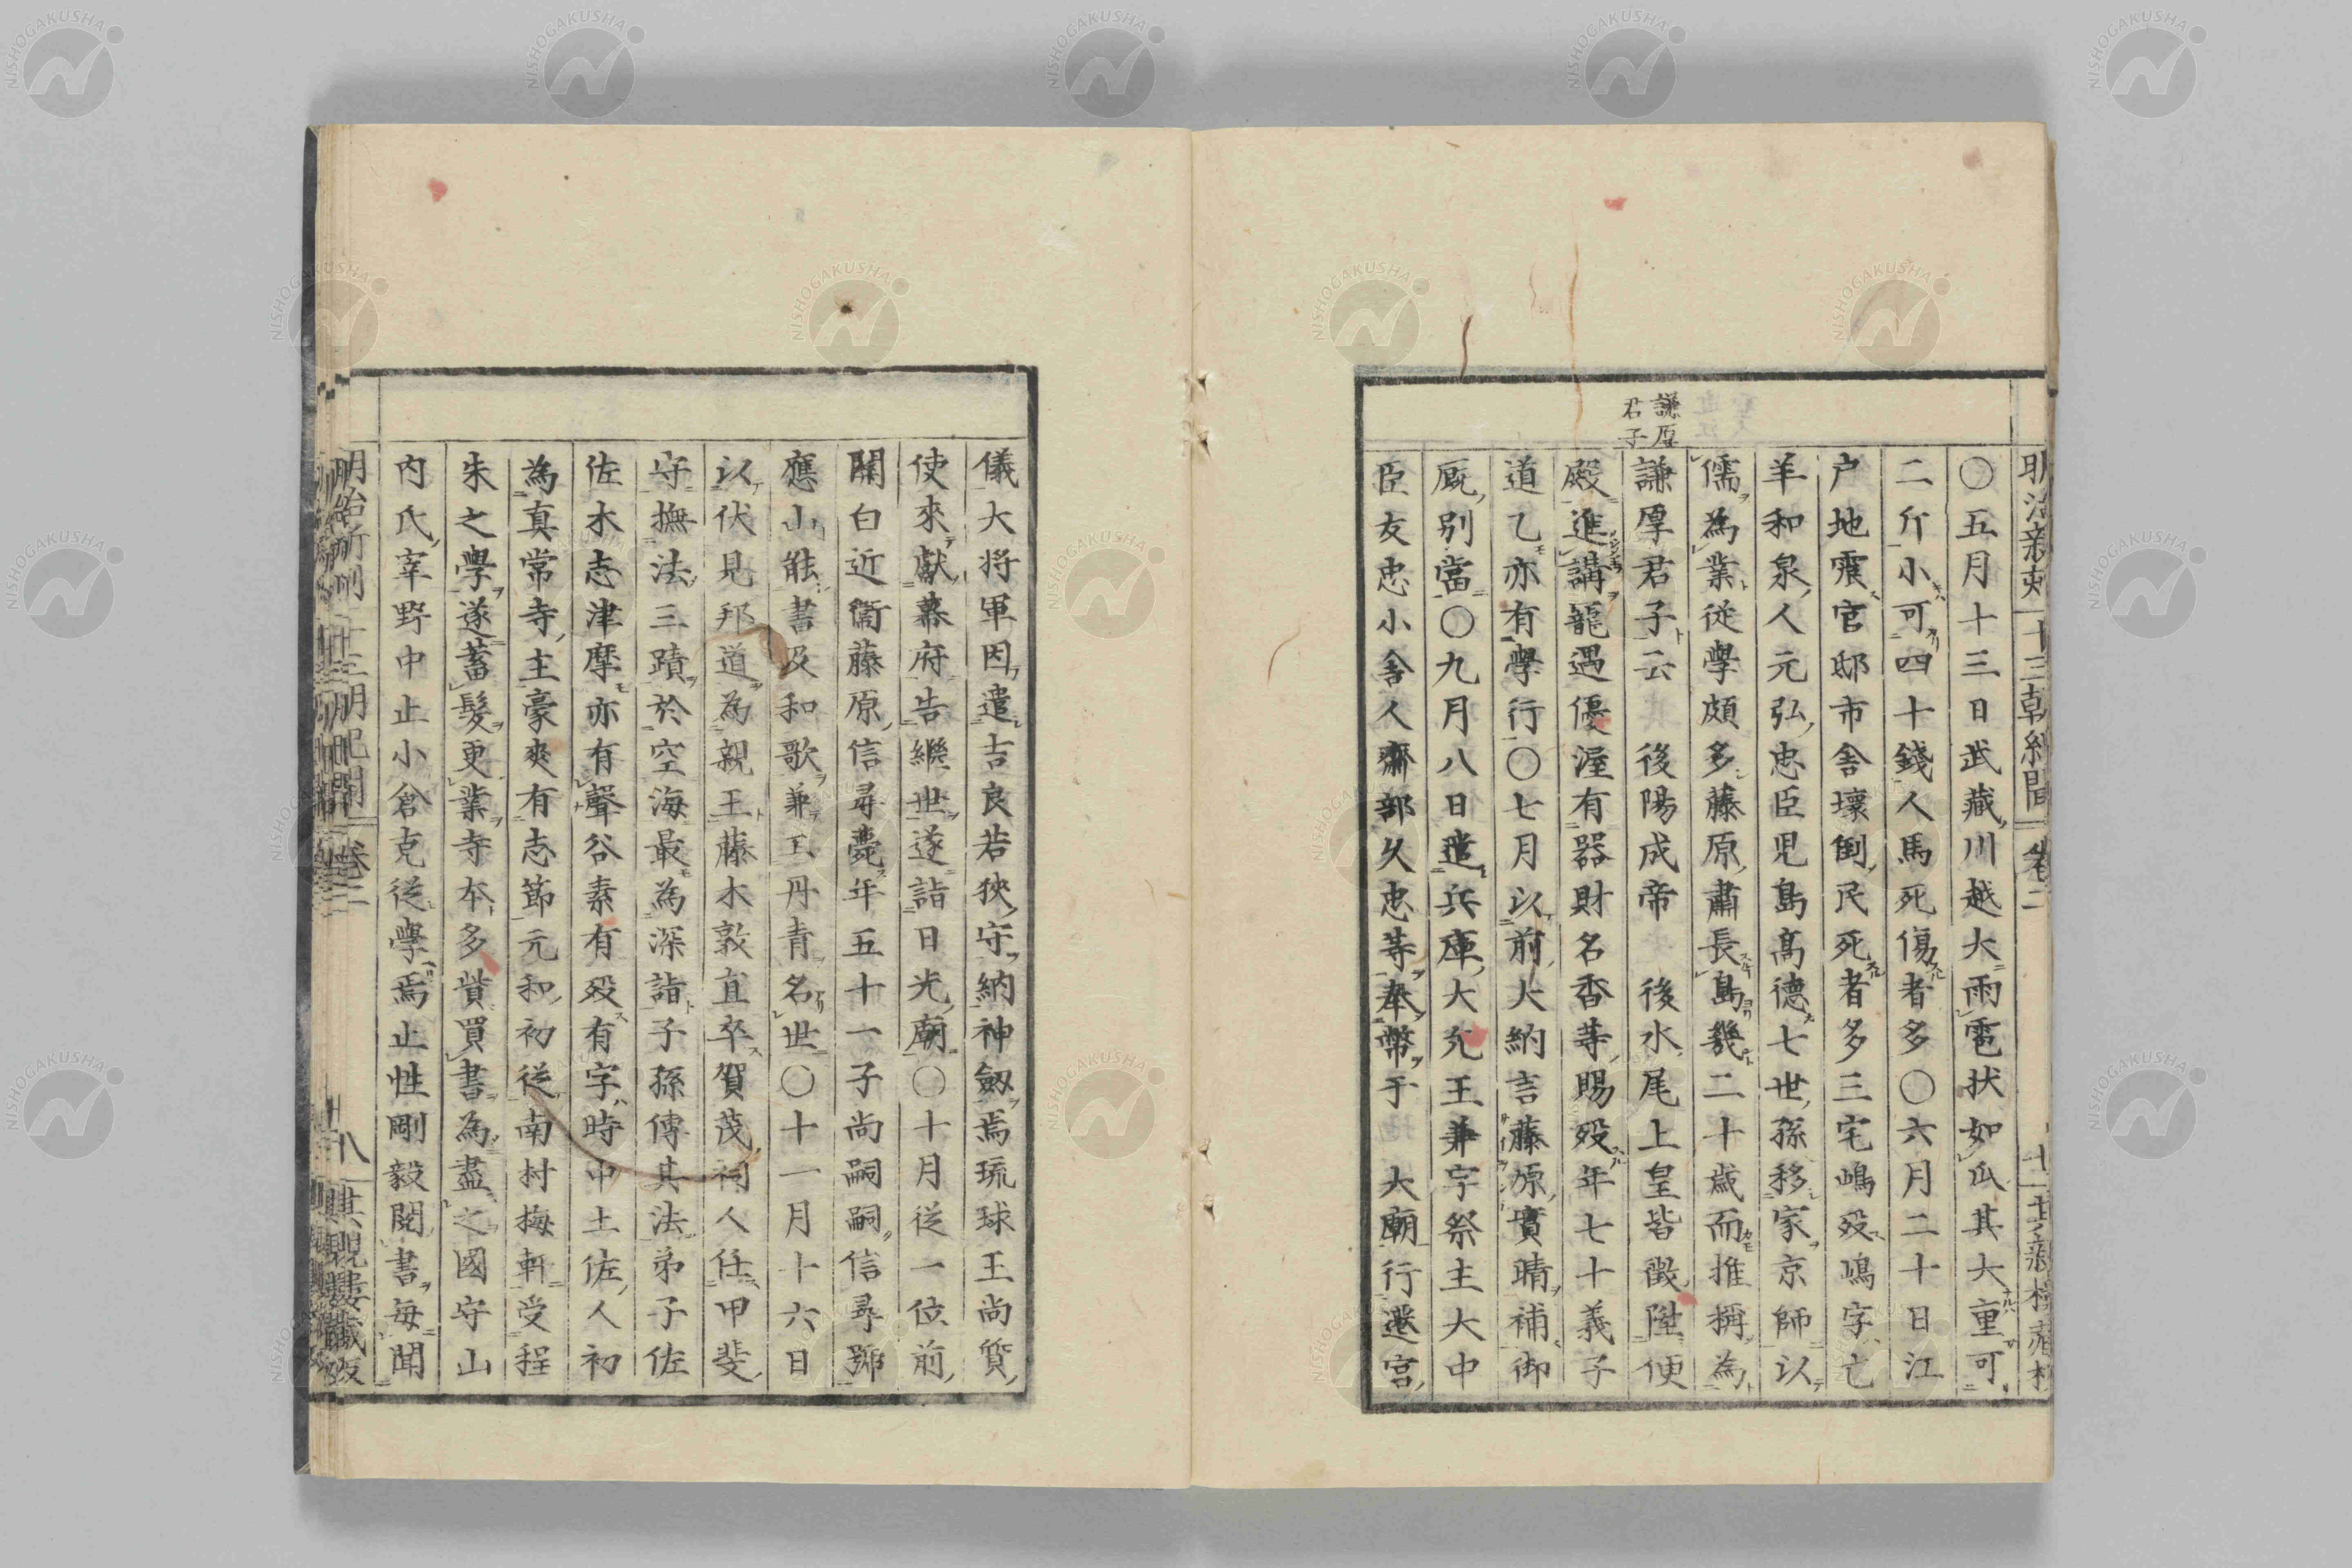 謙厚
君子
〇五月十三日武藏川越大雨雹状如瓜其大重可
二斤小可四十錢人馬死傷者多〇六月二十日江
户地震官邸市舎壞倒民死者多三宅嶋殁嶋字亡
羊和泉人元弘忠臣児島髙德七世孫移家京師以
儒為業從學頗多藤原肅長島幾二十歳而推稱為
謙厚君子云 後陽成帝 後水尾上皇皆徵陞便
殿進講寵遇優渥有器財名香等賜殁年七十義子
道乙亦有學行〇七月以前大納言藤原實晴補御
厩別當〇九月八日遣兵庫大允王兼字祭主大中
臣友忠小舎人齋部久忠等奉幣于 大廟行遷宮
儀大将軍因遣吉良若狹守納神劔焉琉球王尚質
使來獻幕府告繼世遂詣日光廟〇十月従一位前
關白近衞藤原信尋薨年五十一子尚嗣嗣信尋號
應山能書及和歌兼工丹青名世〇十一月十六日
以伏見邦道為親王藤木敦直卒賀茂祠人任甲斐
守撫法三蹟於空海最為深詣子孫傳其法弟子佐
佐木志津摩亦有聲谷素有殁有字時中土佐人初
為真常寺主豪爽有志節元和初従南村梅軒受程
朱之學遂蓄髮更業寺本多貲買書為盡之國守山
内氏宰野中止小倉克従學焉止性剛毅閲書毎聞
NISHOGAKUSHA